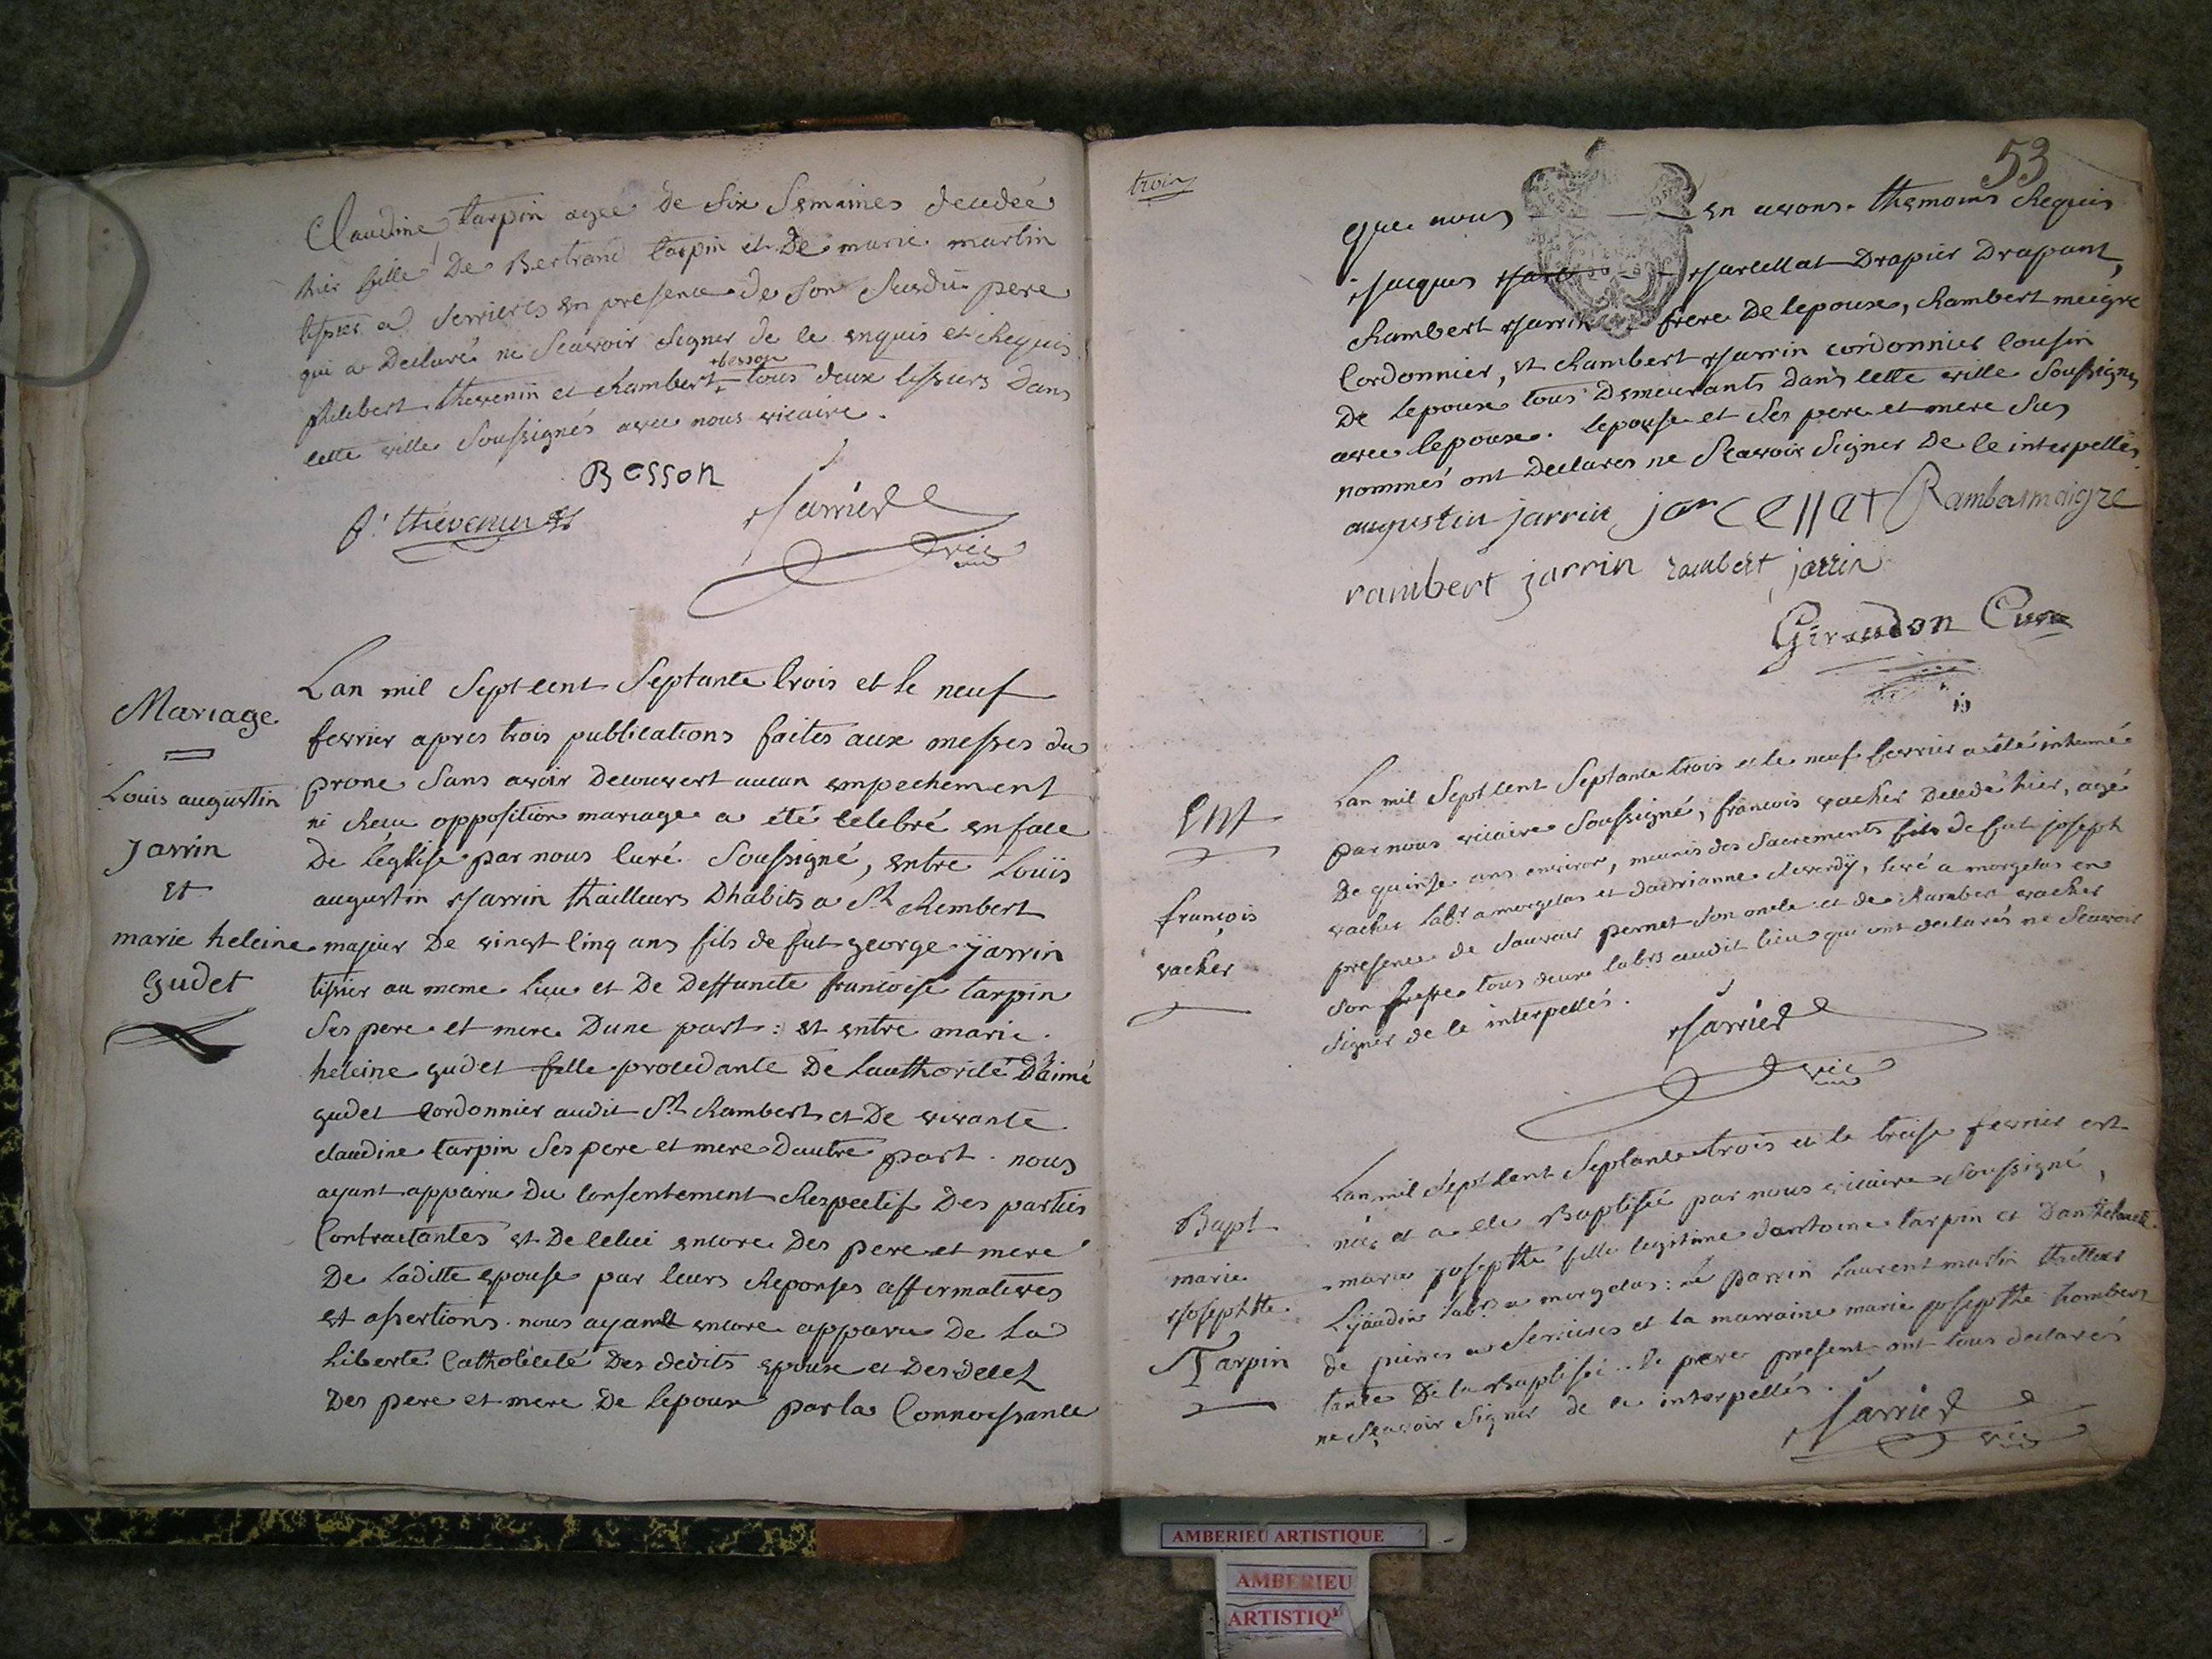 Claudine tarpin agée de Six Semaines decedée
hier fille De Bertrand tarpin et De marie martin
tissier a Serrieres en presence de Son Susdit pere
qui a Declaré ne Scavoir Signer de ce enquis et Requis
besson
philibert thevenin et Rambert + tous deux tissiers Dans
cette ville Soussignés avec nous vicaire.
Besson
p. thevenin
Jarrier
vic
Mariage
Louis augustin
Jarrin
et
marie heleine
gudet
Lan mil Sept cent Septante trois et le neuf
fevrier apres trois publications faites aux messes du
prone Sans avoir Decouvert aucun empechement
ni Recu opposition mariage a été celebré en face
De leglise par nous Curé Soussigné, entre Louis
augustin Jarrin thailleurs Dhabits a St Rembert
majeur De vingt cinq ans fils de fut george jarrin
tissier au meme lieu et De Deffuncte francoise tarpin
Ses pere et mere Dune part: et entre marie
heleine gudet fille procedante De Lauthorité Daimé
gudet Cordonnier audit St Rambert et De vivante
claudine tarpin Ses pere et mere Dautre part. nous
ayant apparu Du Consentement Respectif Des parties
Contractantes et De Celui encore Des pere et mere
De Laditte epouse par leurs Reponses affirmatives
et assertions. nous ayant encore apparu De La
Liberté Catholicité Des dedits epoux et Des deces
Des pere et mere De lepoux par la Connoissance
trois
53
que nous en avons. themoins Requis
Jacques Jarcellat Drapier Drapant,
Rambert Jarrin frere De lepoux, Rambert meigre
Cordonnier, et Rambert Jarrin cordonnier Cousin
De lepoux tous Demeurants dans cette ville Soussignés
avec lepoux. lepouse et Ses pere et mere Sus
nommés ont Declarer ne Scavoir Signer De ce interpellés
augustin jarrin jarcellat Rambermaigre
rambert jarrin rambert jarrin
Giraudon Curé
Ent
françois
vacher
Lan mil Sept cent Septante trois et le neuf fevrier a été inhumé
par nous vicaire Soussigné, francois vacher Decedé hier, agé
De quinse ans environ, munis des Sacrements fils de fut joseph
vacher labr a morgelas et dadrianne, levé a morgelas en
presence de Sauveur pernet Son oncle et de Rambert vacher
Son frere tous deux labrs audit lieu qui ont declarés ne Scavoir
Signer de ce interpellés.
Jarrier
vic
Bapt
marie
Josephtte
Tarpin
Lan mil Sept cent Septante trois et le treise fevrier est
née et a ete Baptisée par nous vicaire Soussigné,
marie josepthe fille legitime dantoine tarpin et
labrs a morgelas: le parrin Laurent martin thailleur
de pierres a Serrieres et la marraine marie josepthe
tante De la Baptisée. le pere present ont tous declarés
ne Scavoir Signer de ce interpellés.
Jarrier
vic
AMBERIEU ARTISTIQUE
AMBERIEU
ARTISTIQ